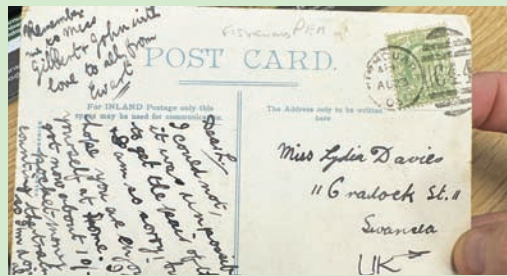 Remember
me to Miss
Gilbert & John with
love to all from
Ewart
FISHGUARD PEM
POST CARD.
For INLAND Postage only this
space may be used for communication.
The Address only to be written
here
Dear L
I could not,
it was impossible
to get the pair of
I am so sorry,
hope you are enjoy
yourself at home. I
got now about 10/-
pocket money
the train
Miss Lydia Davies
"Cradock St."
Swansea
UK